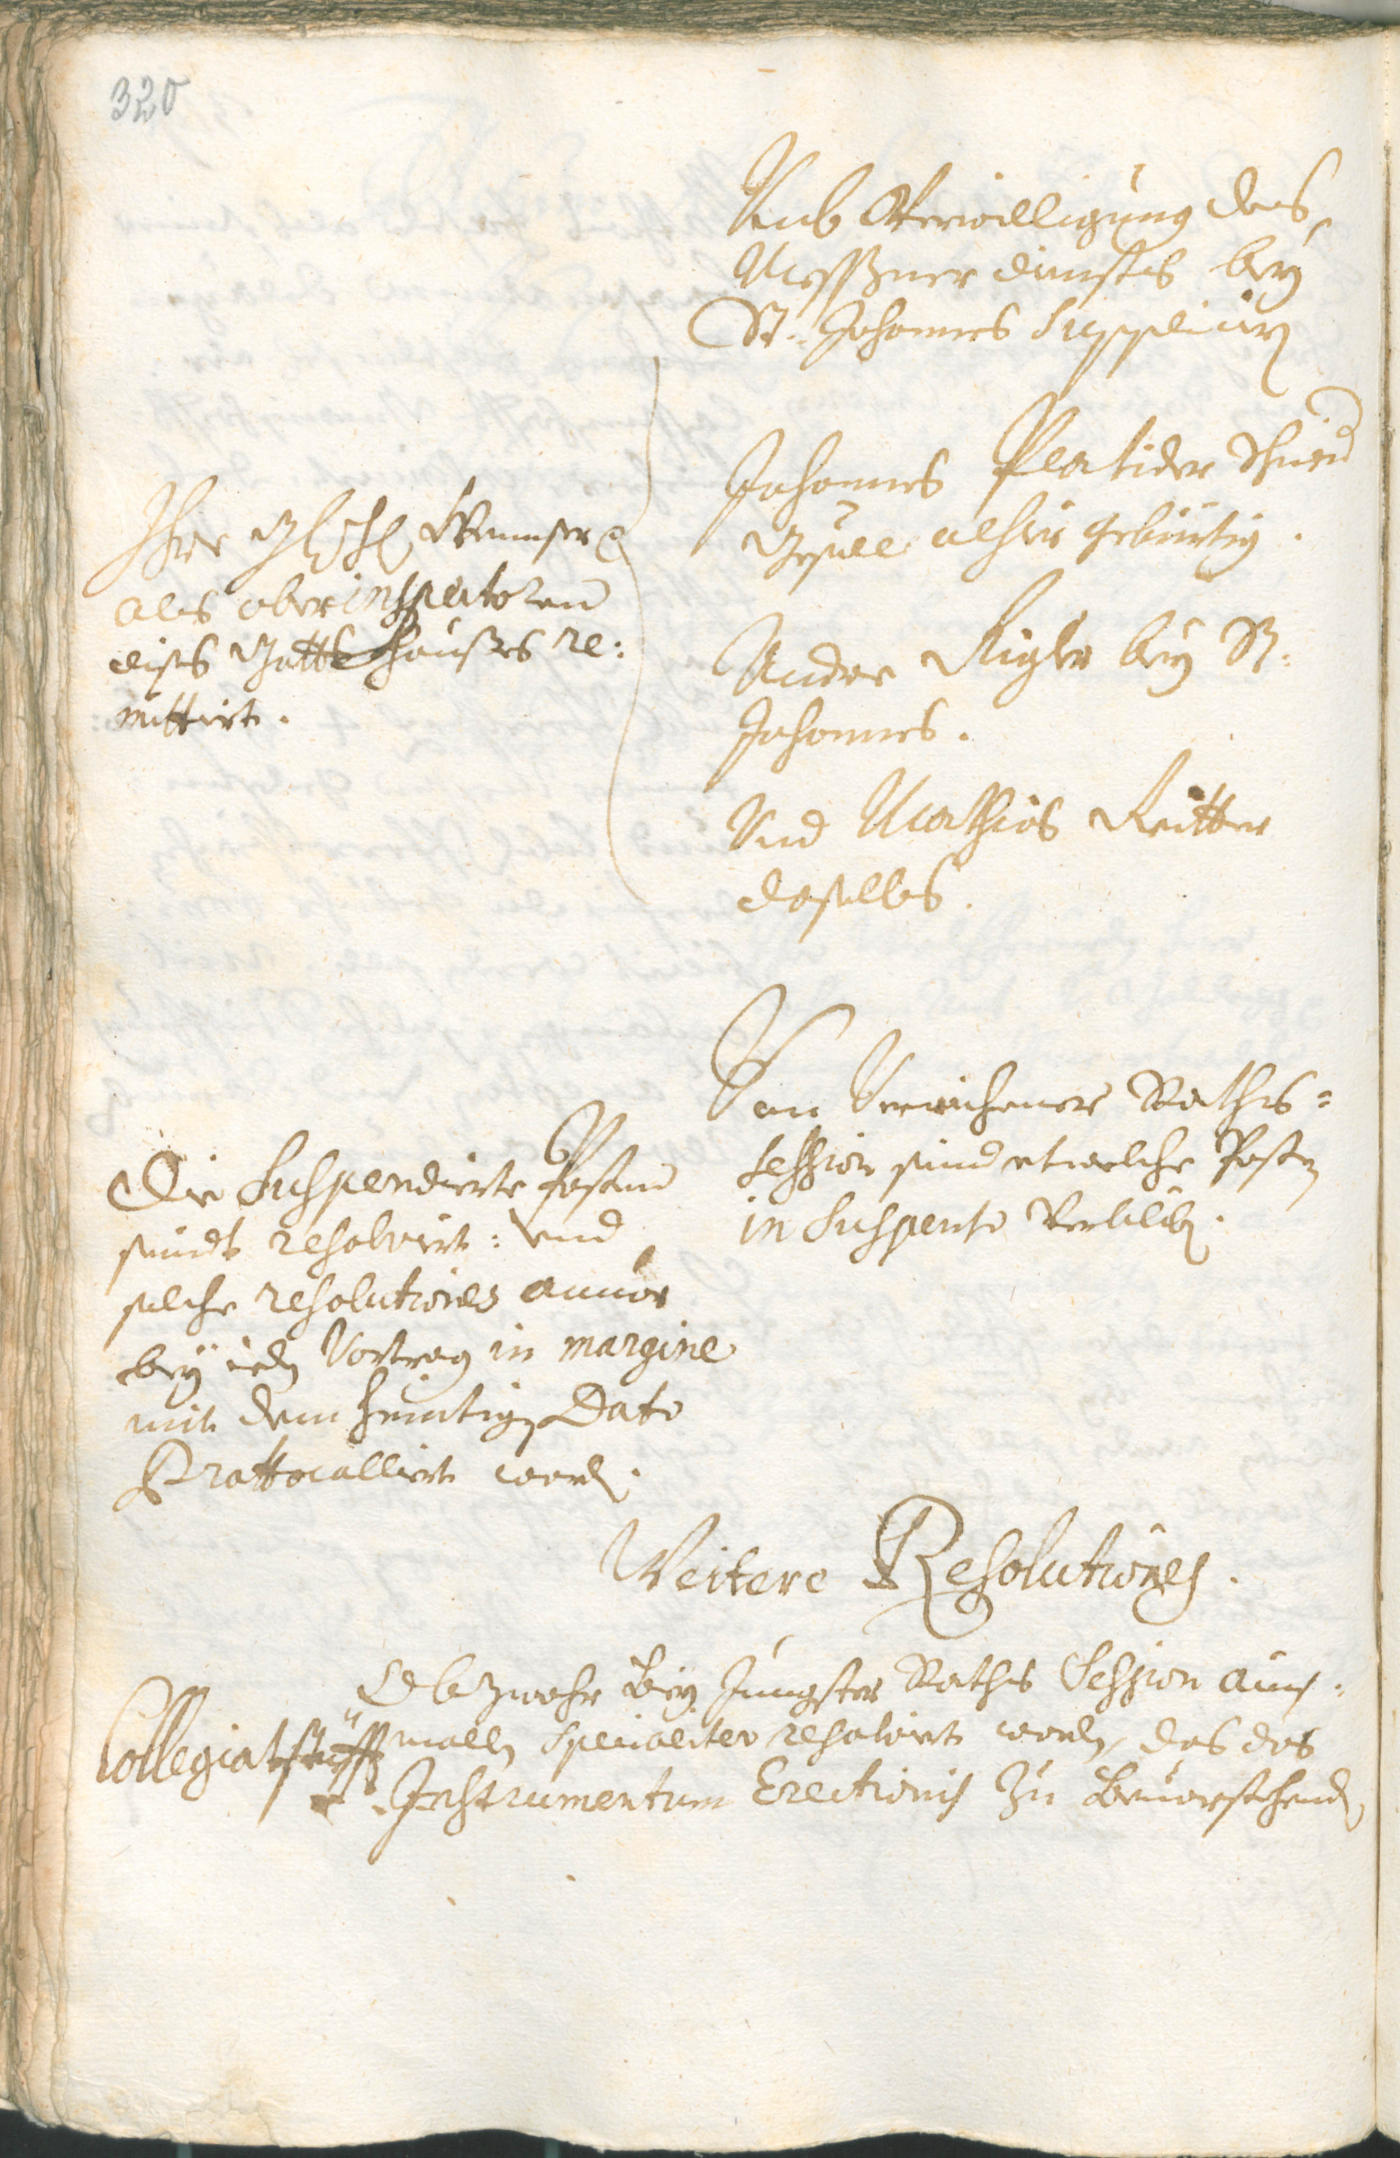 320
Umb Verwilligung des
Messzner diensts bey
St. Johannes Supplicirn
Johannes Schmid
Gesell alhir gebürtig.
Andre Rigler bey St:
Johannes.
Und Mathias Ritter
daselbs.
Ihre
als ober inspectoren
diss Gottshauses re:
mittirt.
Von Verwichener Raths=
Session sind etwelche Posten
in Suspenso verbliben.
Die Suspendierte Posten
seindt resolvirt: und
solche resolutiones anvor
bey iedem Vortrag in margine
mit dem heuntigen Dato
Prottocollirt worden.
Weitere Resolutiones.
Collegiatstüfft
Obzwahr bey Jungster Raths Session aber=
mallen specialiter resolvirt worden, das das
Instrumentum Erectionis zu bevorstehenden